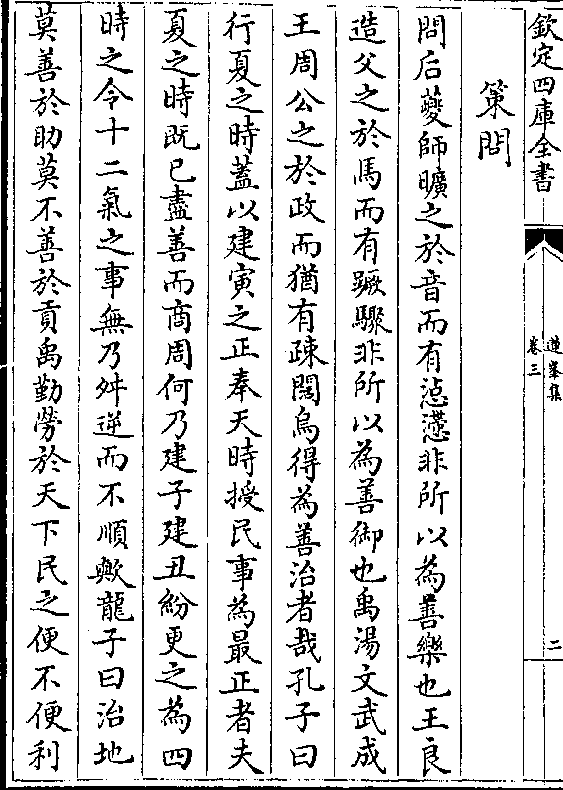 欽定四庫全書
蓮峯集
卷三
二
策問
問后夔師曠之於音而有怗懘非所以為善樂也王良
造父之於馬而有蹶驟非所以為善御也禹湯文武成
王周公之於政而猶有疎闊烏得為善治者哉孔子曰
行夏之時蓋以建寅之正奉天時授民事為最正者夫
夏之時既已盡善而商周何乃建子建丑紛更之為四
時之令十二氣之事無乃舛逆而不順歟龍子曰治地
莫善於助莫不善於貢禹勤勞於天下民之便不便利